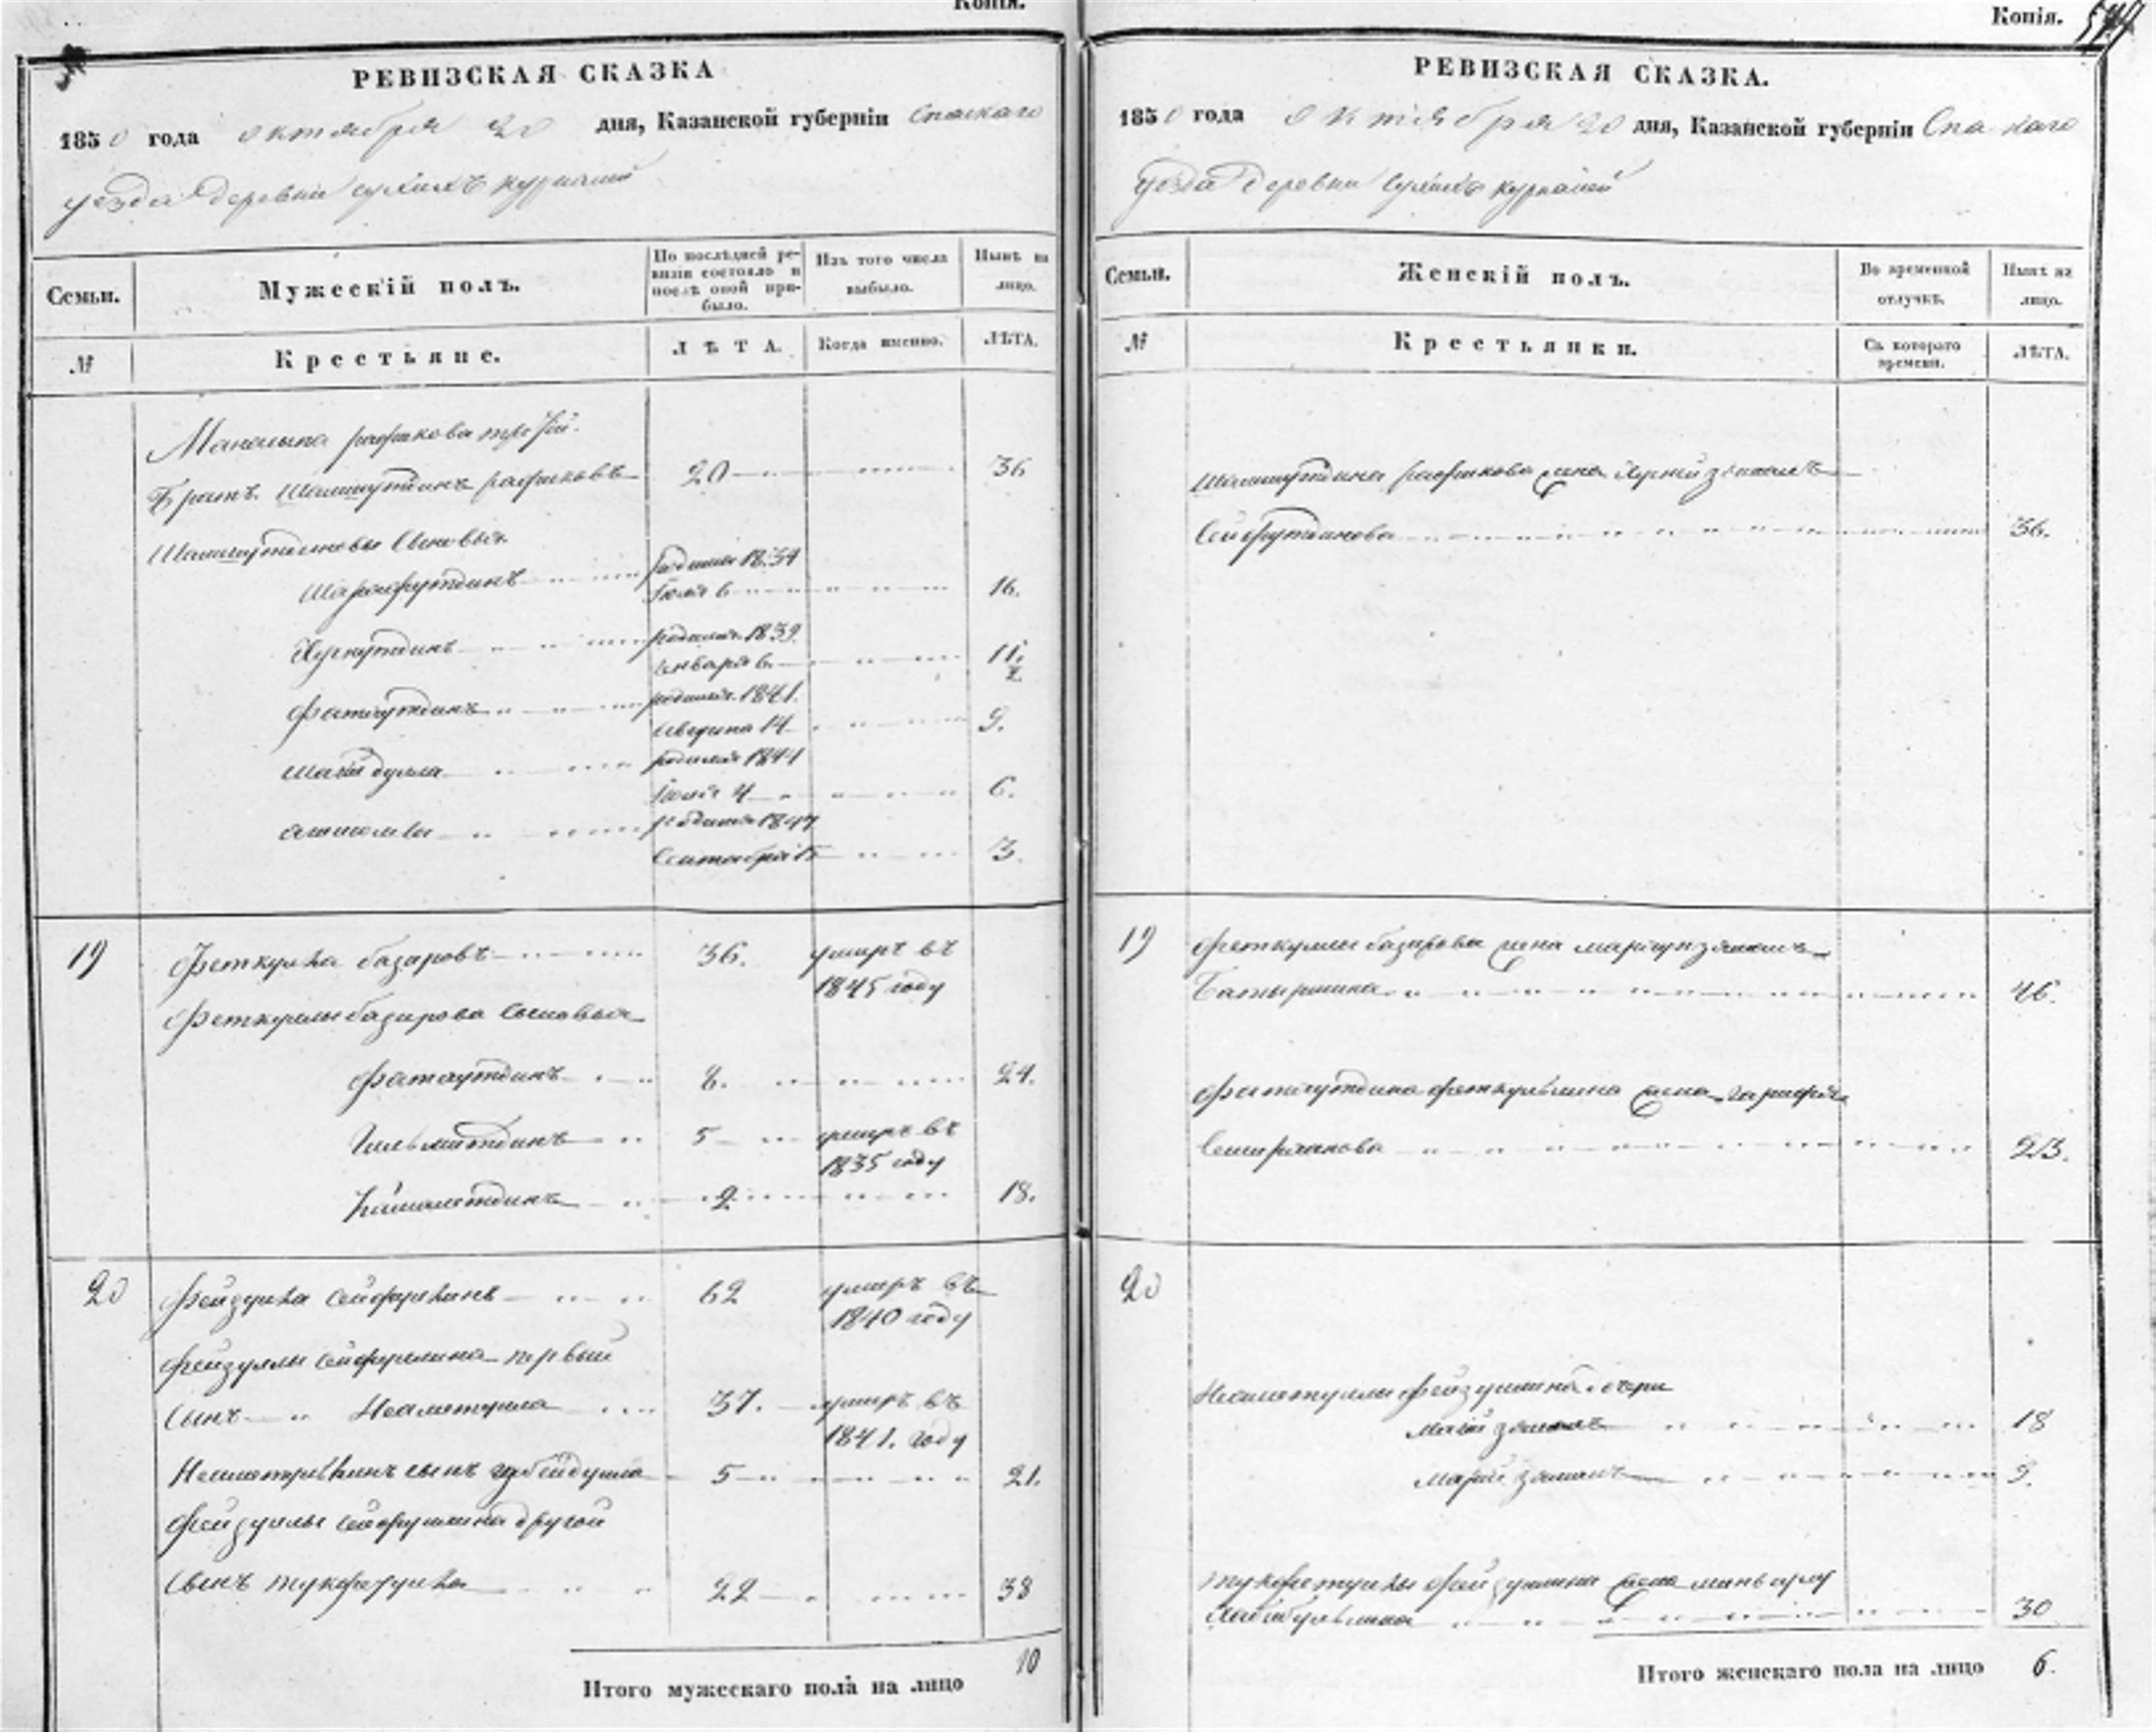 Копія.
РЕВИЗСКАЯ СКАЗКА
1850 года октября 20 дня, Казанской губерніи Спаскаго
уезда деревни сухихъ курналей
Семьи.
Мужескій полъ.
По послѣдней ревизіи состояло и послѣ оной прибыло.
Изъ того числа выбыло.
Нынѣ на лицо.
№
Крестьяне.
ЛѢТА.
Когда именно.
ЛѢТА.
рафикова третій
Братъ Шамшутдинъ рафиковъ 20 36
Шамшутдиновы Сыновья
Шарафутдинъ родился 1834
Іюля 6 16.
родился 1839
Января 6 11 1/2
Фатхутдинъ родился 1841.
августа 14 9.
родился 1844
Іюля 4 6.
родился 1847
Сентября 15 3.
19 Феткулла базаровъ 36. умеръ въ
1845 году
Феткуллы базарова Сыновья
Фатхутдинъ 8. 24.
Гильмитдинъ 5 умеръ въ
1835 году
Камалетдинъ 2 18.
20 Фейзулла сейфуллинъ 62 умеръ въ
1840 году
Фейзуллы сейфуллина первый
Сынъ Неаметулла 37. умеръ въ
1841. году
Неаметуллинъ сынъ губейдулла 5 21.
Фейзуллы сейфуллина другой
Сынъ тухфетулла 22 38
Итого мужескаго пола на лицо 10
Копія.
РЕВИЗСКАЯ СКАЗКА.
1850 года октября 20 дня, Казанской губерніи Спаскаго
уезда деревни сухихъ курналей
Семьи.
Женскій полъ.
Во временной отлучкѣ.
Нынѣ на лицо.
№
Крестьянки.
Съ котораго времени.
ЛѢТА.
Шамшутдина рафикова жена
Сейфутдинова 36.
19 Феткуллы базарова жена
Батыршина 46.
Фатхутдина феткуллина жена
23.
20
Неаметуллы фейзуллина дочери
18
9.
тухфетуллы фейзуллина жена
30
Итого женскаго пола на лицо 6.